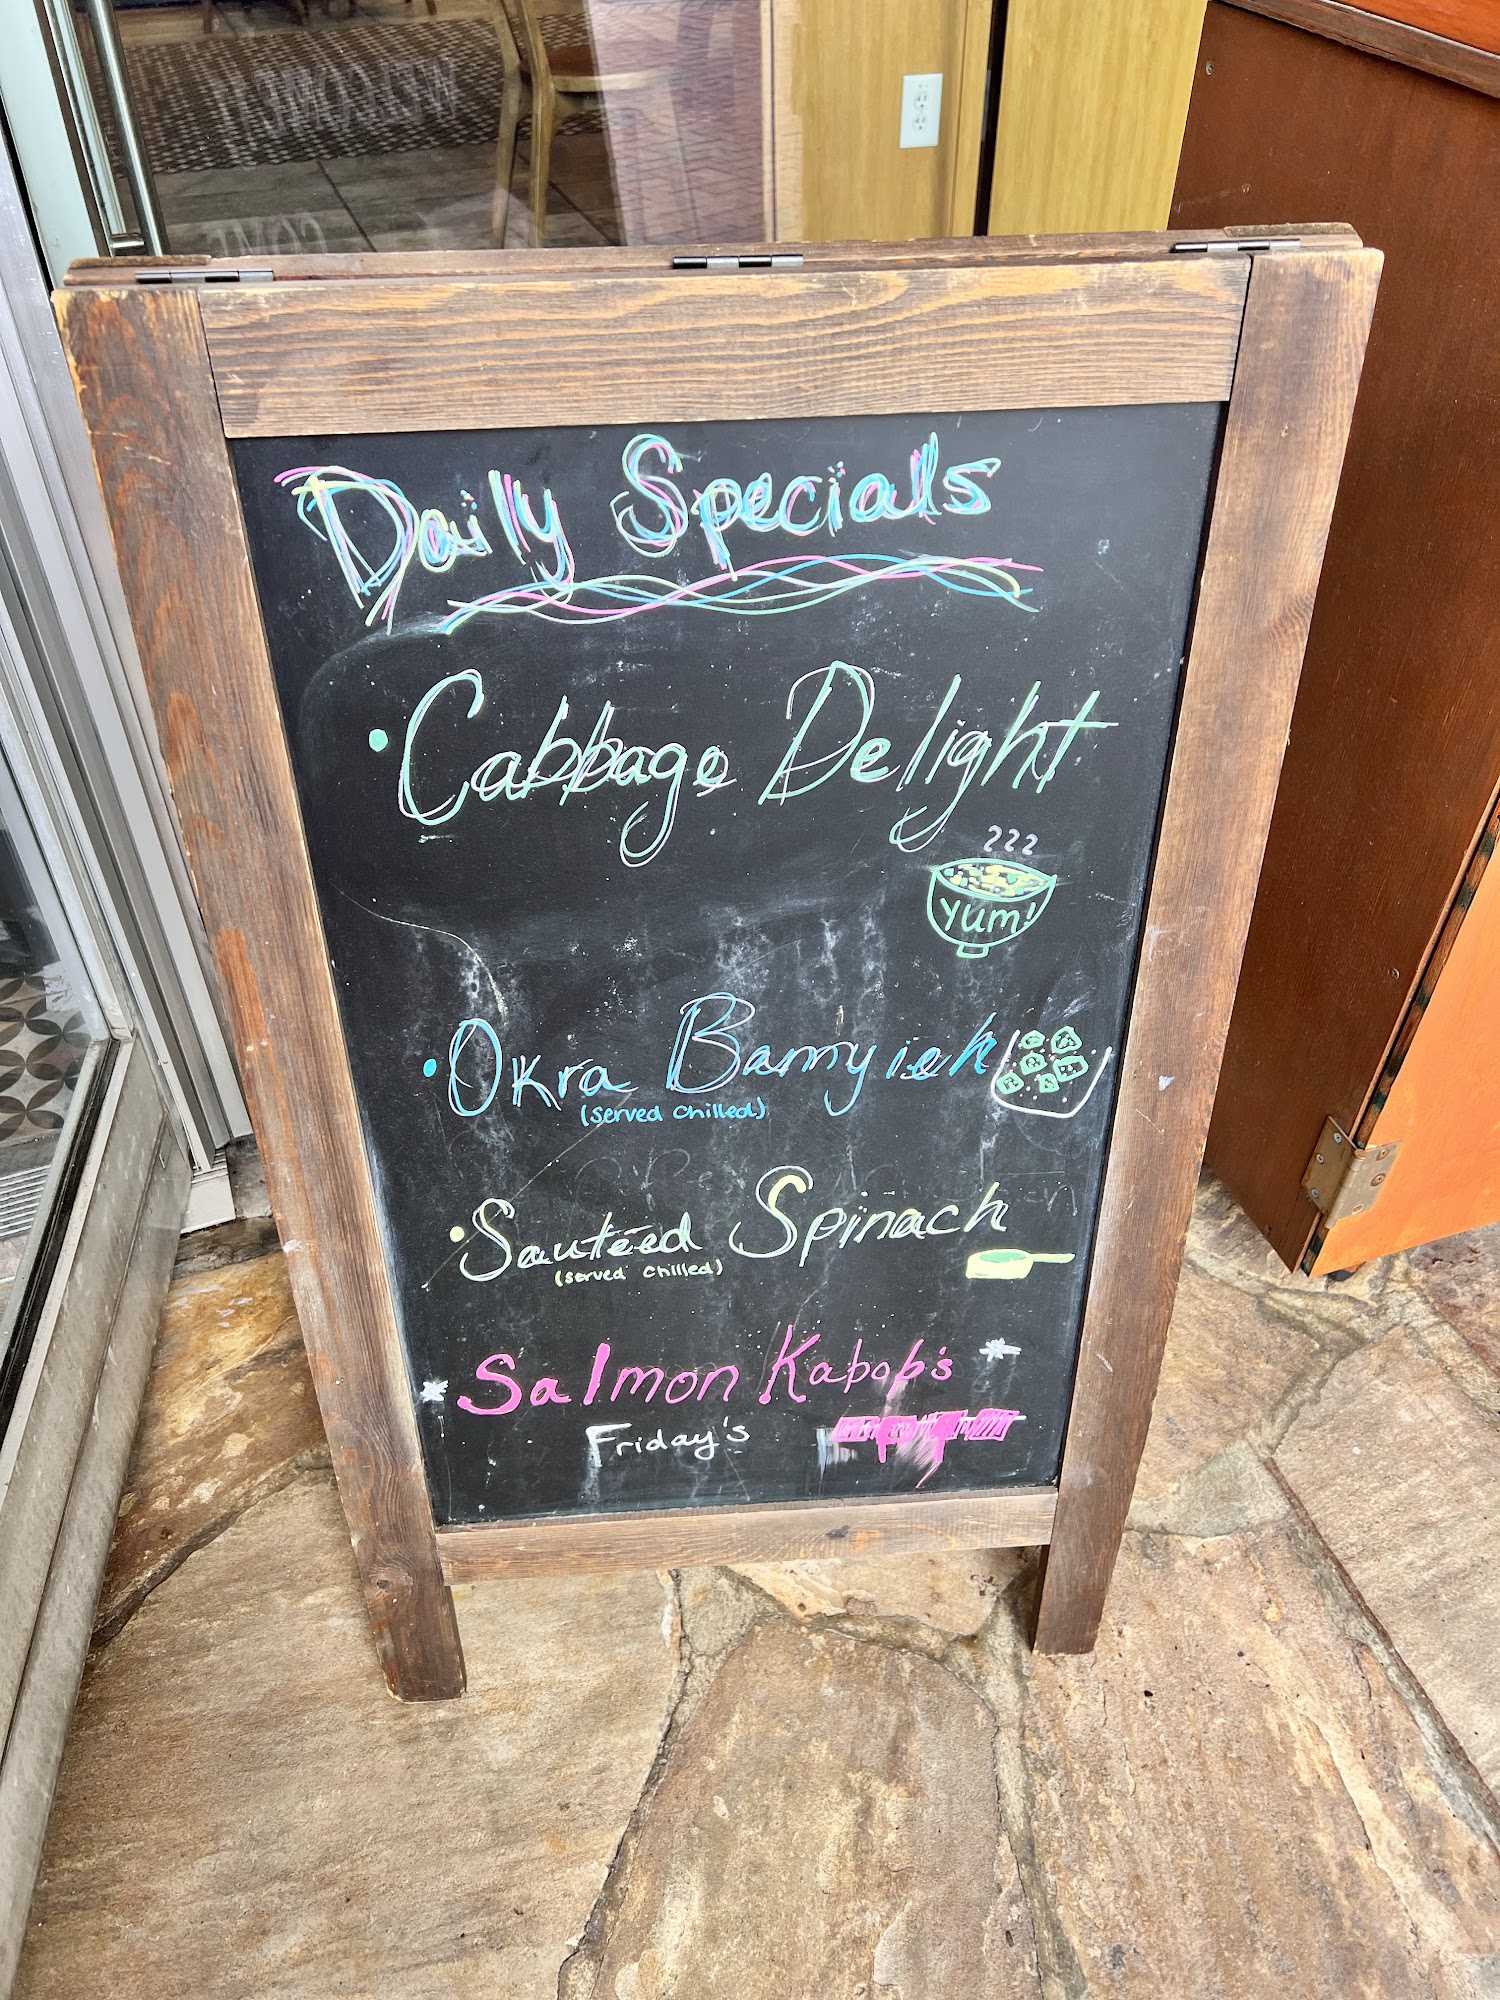 Daily Specials
• Cabbage Delight
Yum!
• Okra Bamyieh
(served chilled)
• Sautéed Spinach
(served chilled)
* Salmon Kabob's *
Friday's